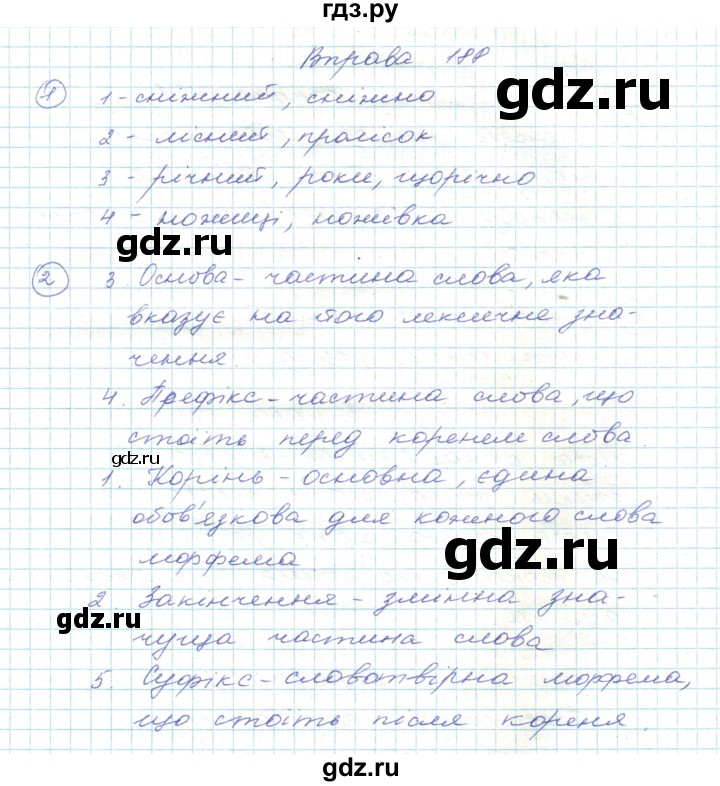 гдз.ру
Вправа 188
1 1 - сніжний, сніжно
2 - лісний, пролісок
3 - річний, роки, щорічно
4 - ножиці, ножівка
gdz.ru
gdz.ru
2 3 Основа - частина слова, яка
вказує на його лексичне зна-
чення.
4. Префікс - частина слова, що
стоїть перед коренем слова.
gdz.ru
1. Корінь - основна, єдина
обов'язкова для кожного слова
морфема
gdz.ru
2. Закінчення - змінна зна-
gdz.ru
чуща частина слова
5. Суфікс - словотвірна морфема,
що стоїть після кореня.
gdz.ru
gdz.ru